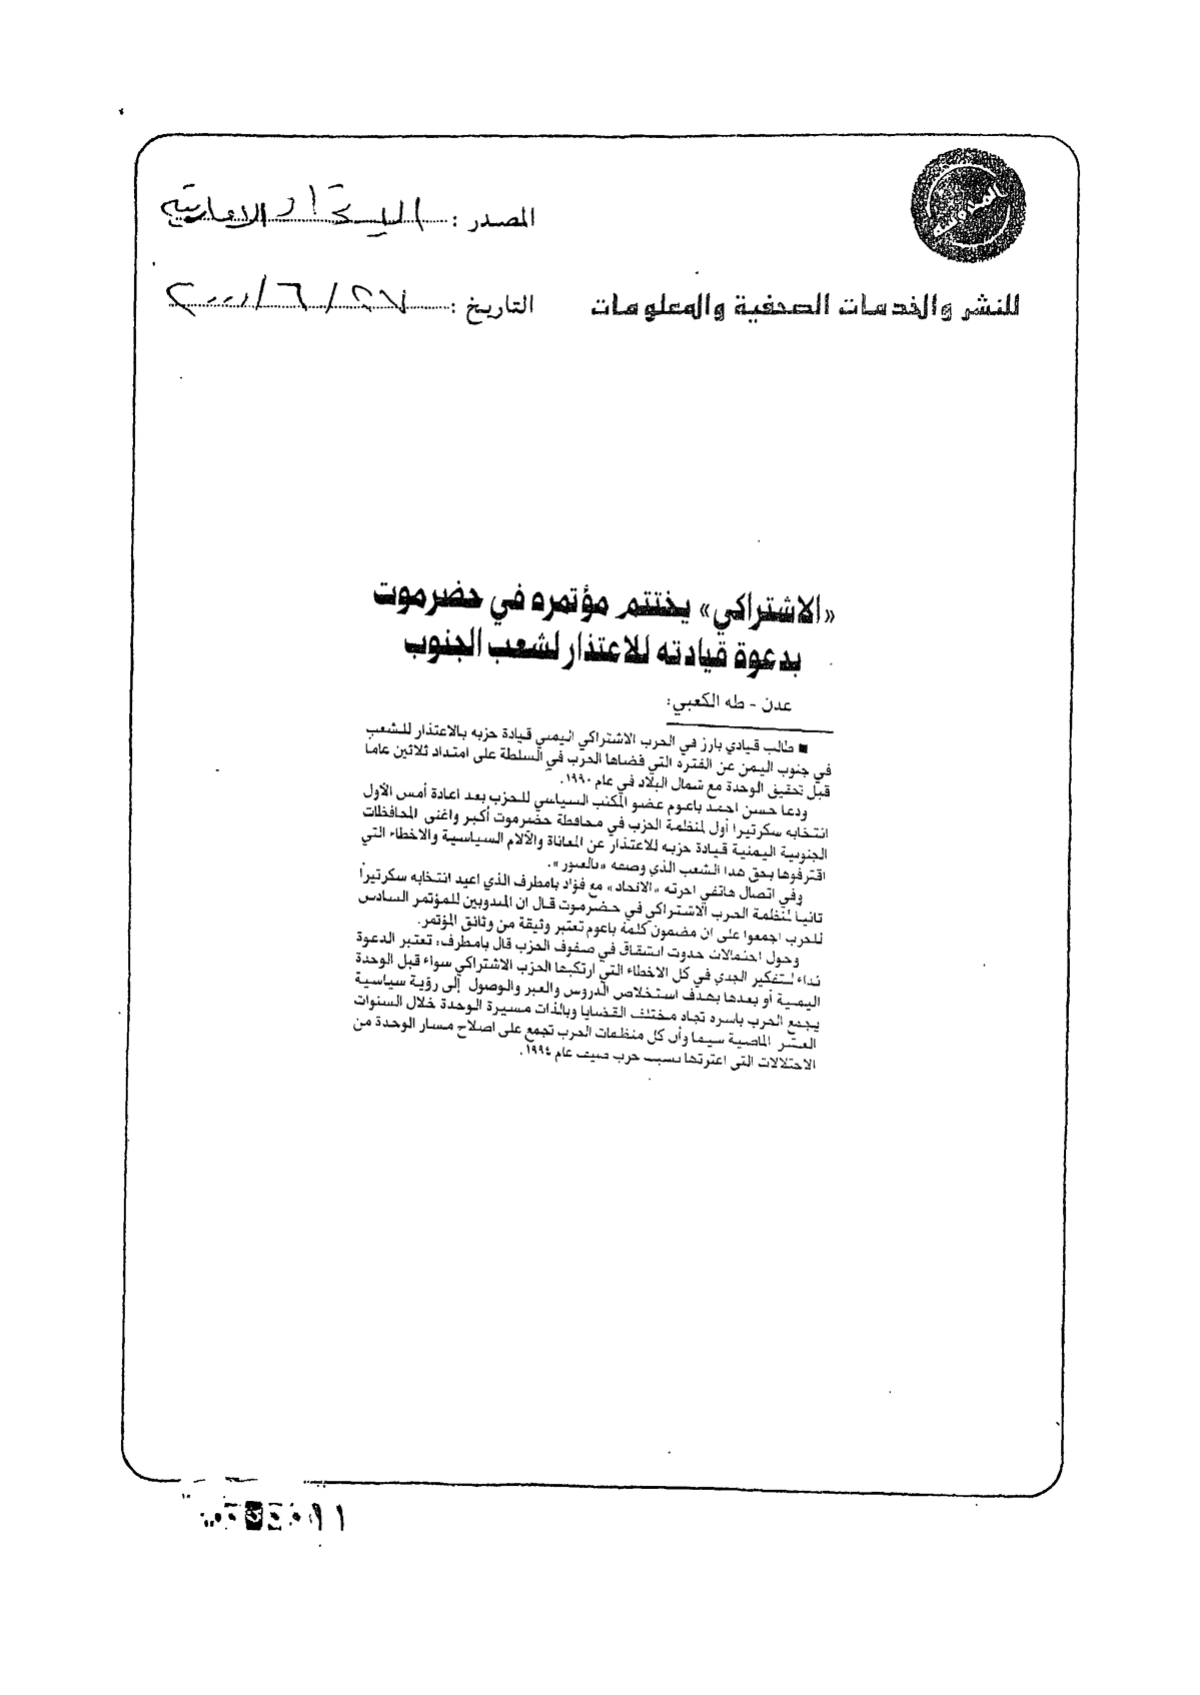 المصدر : الاتحاد الاماراتية
للنشر والخدمات الصحفية والمعلومات
التاريخ : ٢٧ / ٦ / ٢٠٠٠
«الاشتراكي» يختتم مؤتمره في حضرموت
بدعوة قيادته للاعتذار لشعب الجنوب
عدن - طه الكعبي:
■ طالب قيادي بارز في الحزب الاشتراكي اليمني قيادة حزبه بالاعتذار للشعب
في جنوب اليمن عن الفترة التي قضاها الحزب في السلطة على امتداد ثلاثين عاماً
قبل تحقيق الوحدة مع شمال البلاد في عام ١٩٩٠.
ودعا حسن احمد باعوم عضو المكتب السياسي للحزب بعد اعادة أمس الأول
انتخابه سكرتيرا أول لمنظمة الحزب في محافظة حضرموت أكبر واغنى المحافظات
الجنوبية اليمنية قيادة حزبه للاعتذار عن المعاناة والآلام السياسية والاخطاء التي
اقترفوها بحق هذا الشعب الذي وصفه «بالصبور».
وفي اتصال هاتفي اجرته «الاتحاد» مع فؤاد بامطرف الذي اعيد انتخابه سكرتيراً
ثانياً لمنظمة الحزب الاشتراكي في حضرموت قال ان المندوبين للمؤتمر السادس
للحزب اجمعوا على ان مضمون كلمة باعوم تعتبر وثيقة من وثائق المؤتمر.
وحول احتمالات حدوث انشقاق في صفوف الحزب قال بامطرف، تعتبر الدعوة
نداء للتفكير الجدي في كل الاخطاء التي ارتكبها الحزب الاشتراكي سواء قبل الوحدة
اليمنية أو بعدها بهدف استخلاص الدروس والعبر والوصول إلى رؤية سياسية
يجمع الحزب باسره تجاه مختلف القضايا وبالذات مسيرة الوحدة خلال السنوات
العشر الماضية سيما وأن كل منظمات الحزب تجمع على اصلاح مسار الوحدة من
الاختلالات التي اعترتها بسبب حرب صيف عام ١٩٩٤.